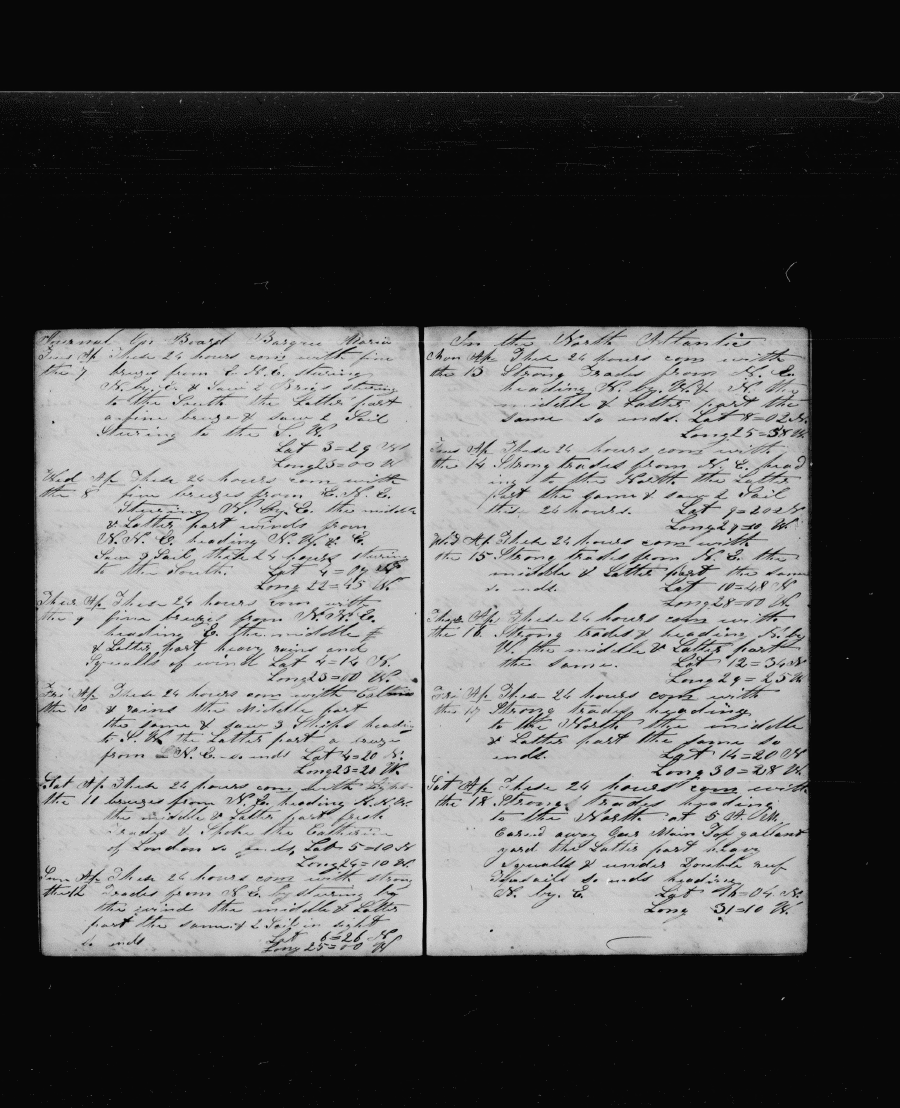 Journal On Board Barque Maria
Tues Ap These 24 hours com with fine
the 7 breezes from E. N. E. stering
N. by E. & Saw 2 Brigs stering
to the South the Latter part
a fine breze & saw 2 Sail
Stering to the S. W.
Lat 3=29 N
Long 25=00 W
Wed Ap These 24 hours com with
the 8 fine brezes from E. N. E.
Stering N. by E. the middle
& Latter part winds from
N. N. E. heading N. W. & E.
Saw 9 Sail these 24 hours stering
to the South. Lat 4=09 N
Long 22=45 W.
Thur Ap These 24 hours com with
the 9 fine brezes from N. N. E.
heading E. the middle
& Latter part hevy rains and
Squalls of wind Lat 4=14 N.
Long 23=00 W.
Fri Ap These 24 hours com with Calms
the 10 & rains the Middle part
the same & saw 3 Ships heading
to S. W. the Latter part a breze
from N. E. so ends Lat 4=20 N.
Long 23=20 W.
Sat Ap These 24 hours com with light
the 11 brezes from N. E. heading N. N. W.
the middle & Latter part fresh
Trades & Spoke the Catherine
of London so ends Lat 5=10 N
Long 24=10 W.
Sun Ap These 24 hours com with strong
the 12 Trades from N. E. by stering by
the wind the middle & Latter
part the same & 2 Sail in sight
so ends Lat 6=26 N
Long 25=00 W
In the North Atlantic
Mon Ap These 24 hours com with
the 13 Strong Trades from N. E.
heading N. by W. & N. the
middle & Latter part the
same so ends. Lat 8=02 N.
Long 25=58 W.
Tues Ap These 24 hours com with
the 14 Strong trades from N. E. head
ing to the North the Latter
part the same & saw 2 Sail
this 24 hours. Lat 9=20 N
Long 27=10 W.
Wed Ap These 24 hours com with
the 15 Strong trades from N. E. the
middle & Latter part the same
so ends. Lat 10=48 N
Long 28=00 W.
Thur Ap These 24 hours com with
the 16 Strong trades & heading N. by
W. the middle & Latter part
the same. Lat 12=34 N
Long 29=25 W
Fri Ap These 24 hours com with
the 17 Strong trades heading
to the North the middle
& Latter part the same so
ends. Lat 14=20 N
Long 30=28 W.
Sat Ap These 24 hours com with
the 18 Strong trades heading
to the North at 5 A. M.
Caried away Our Main Top gallant
yard the Latter part hevy
Squalls & under Double reef
Topsails so ends heading
N. by E. Lat 16=04 N.
Long 31=10 W.